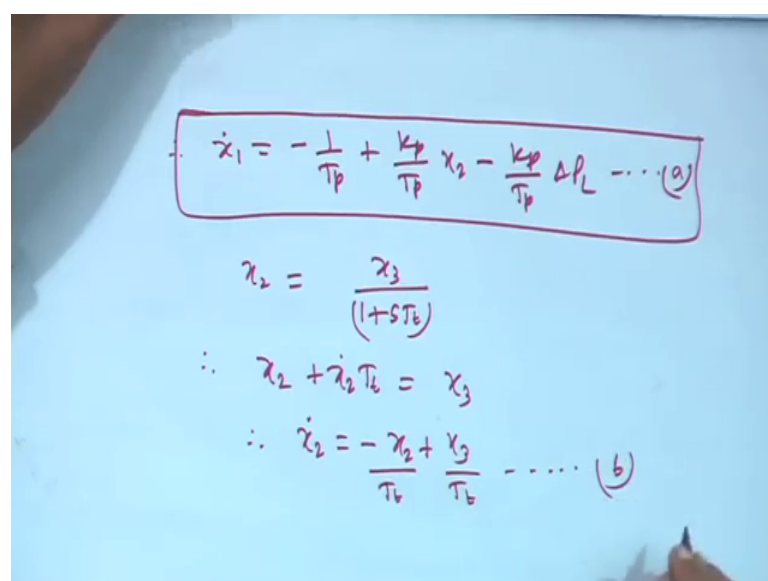 ∴ ẋ₁ = - 1/Tp + Kp/Tp x₂ - Kp/Tp ΔP_L ----(a)
x₂ = x₃/(1+STt)
∴ x₂ + ẋ₂Tt = x₃
∴ ẋ₂ = - x₂/Tt + x₃/Tt ----- (b)